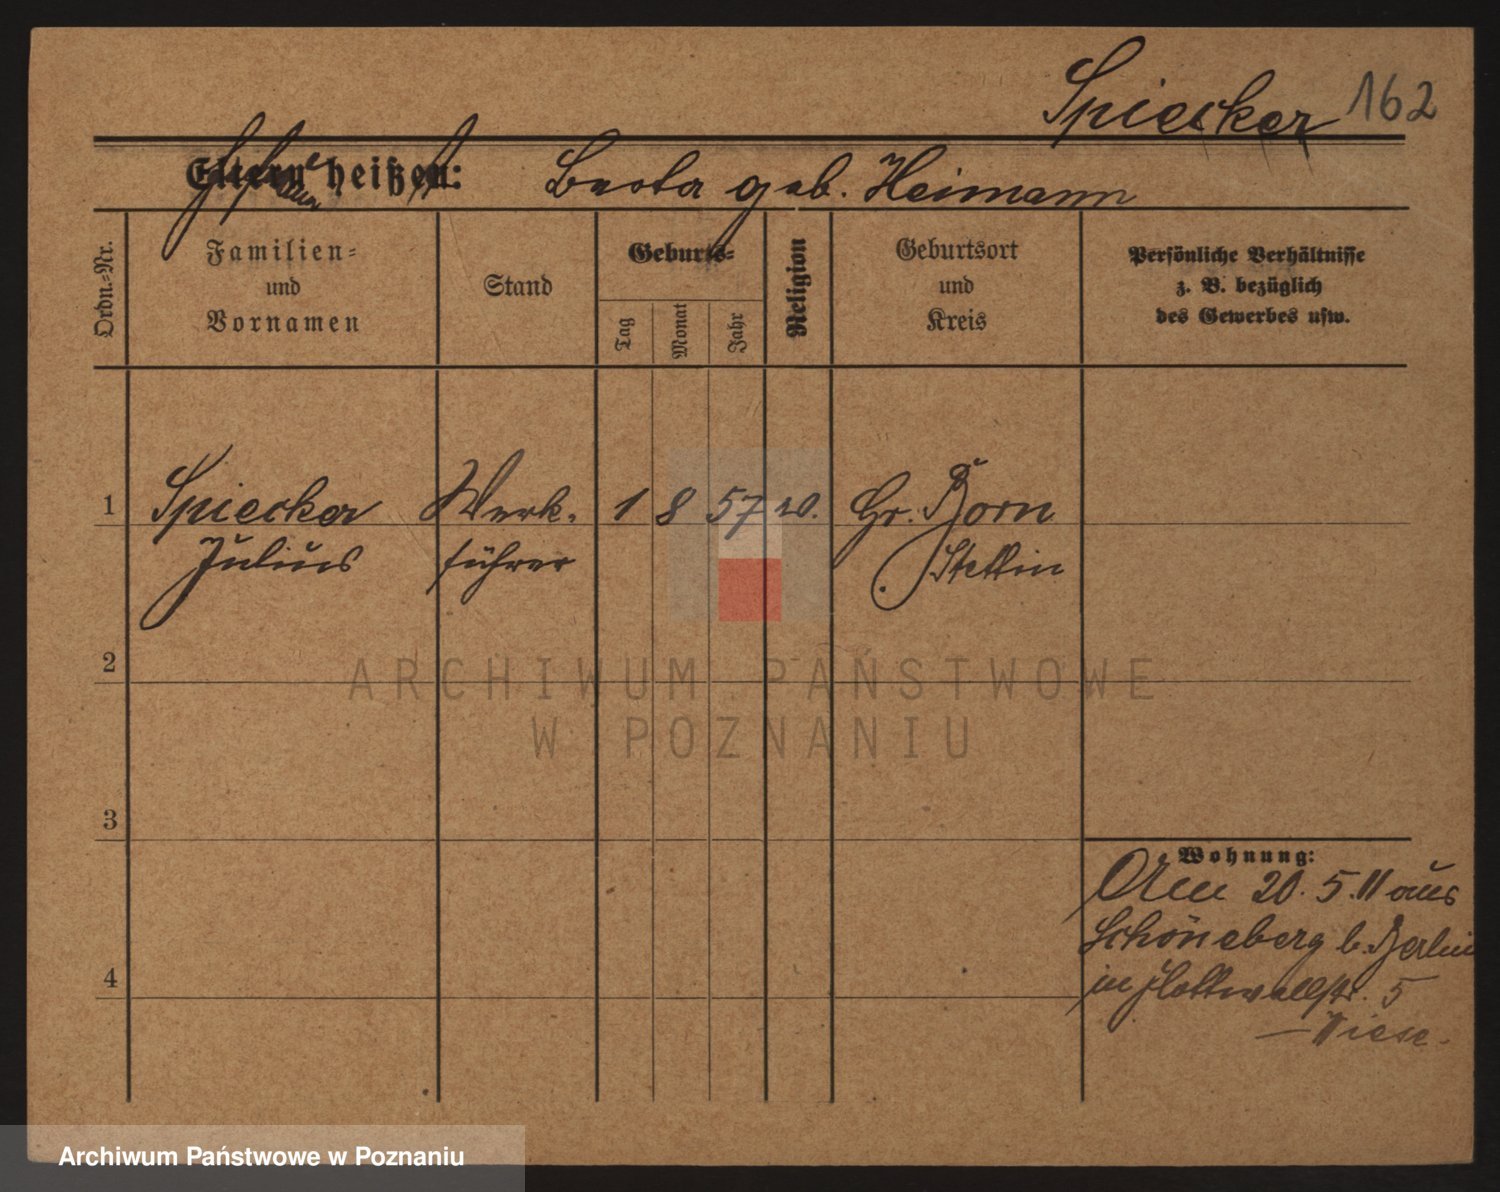 Spiecker 162
Eltern heißen: Berta geb. Heimann
Ordn.-Nr.
Familien-
und
Vornamen
Stand
Geburts-
Tag
Monat
Jahr
Religion
Geburtsort
und
Kreis
Persönliche Verhältnisse
z. B. bezüglich
des Gewerbes usw.
1 Spiecker Werk- 1 8 57 Gr. Born
Julius führer Stettin
2
3
4
Wohnung:
20. 5. 11 aus
Schöneberg b. Berlin
in Hottwellstr. 5
ARCHIWUM PAŃSTWOWE
W POZNANIU
Archiwum Państwowe w Poznaniu